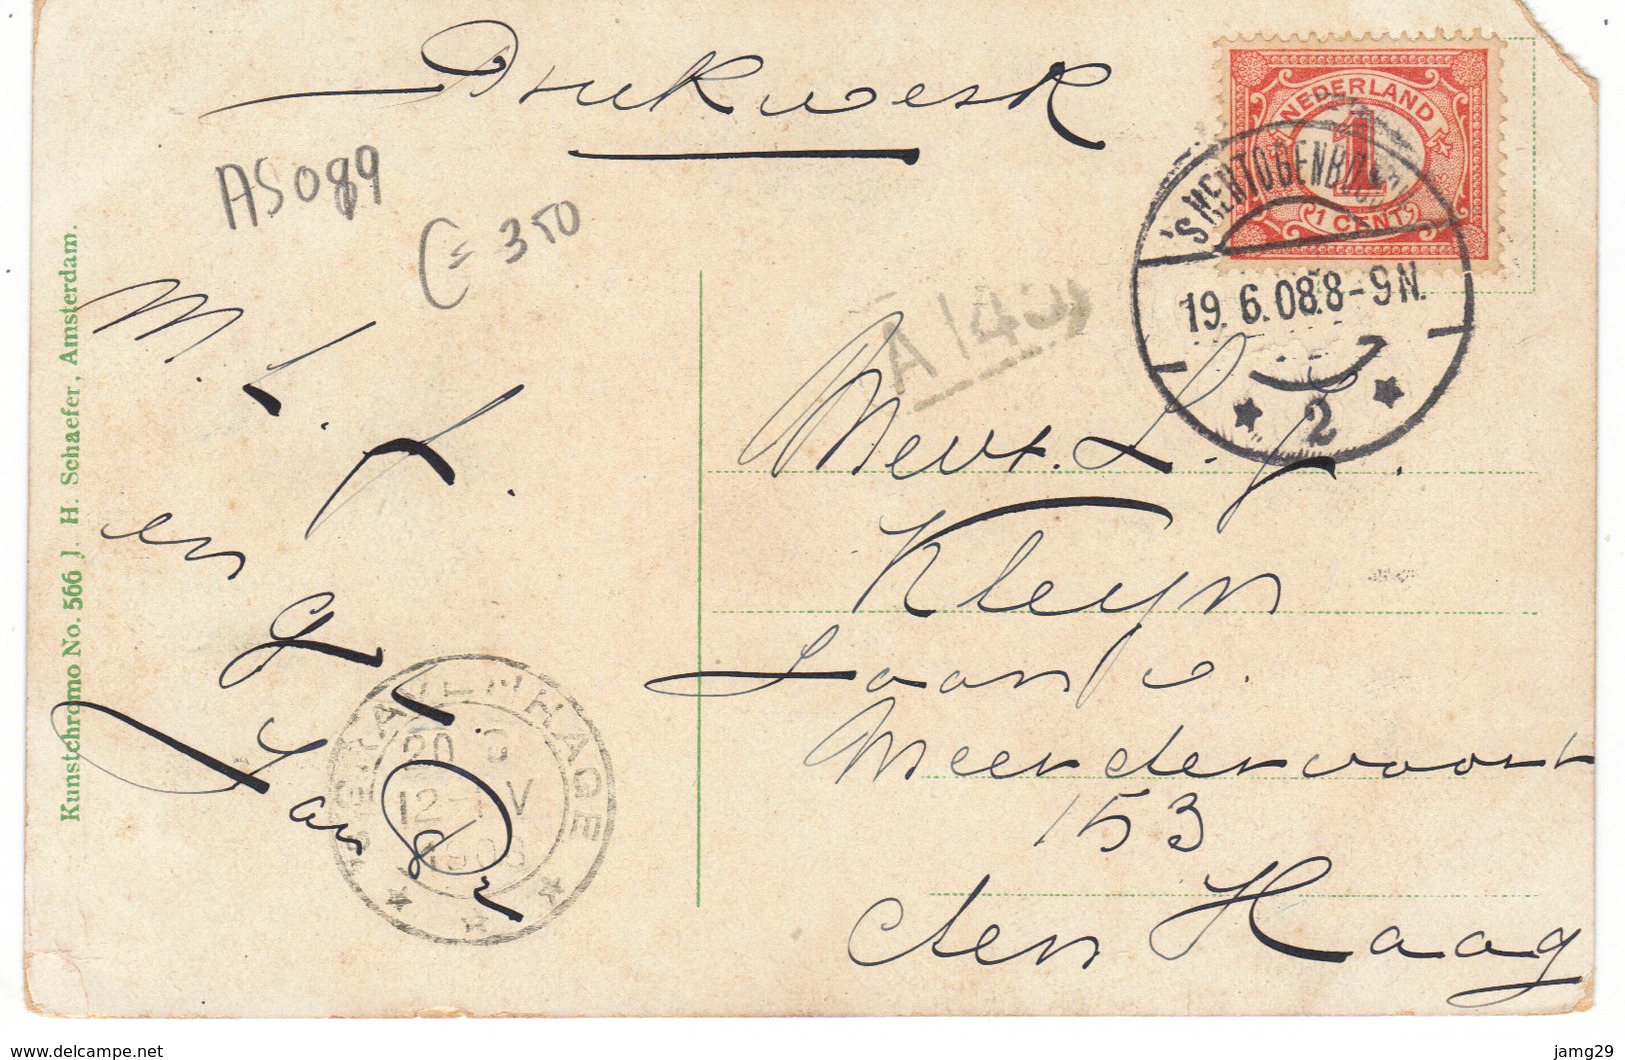 Drukwerk
AS089
C = 350
A 1430
NEDERLAND
1
1 CENT
'S HERTOGENBOSCH
19. 6. 08. 8-9 N.
2
Kunstchromo No. 566 J. H. Schaefer, Amsterdam.
M. L. f.
en
Jan
'S GRAVENHAGE
12-1 V
1908
Mevr. L. J.
Kleyn
Laan v.
Meerdervoort
153
den Haag
www.delcampe.net
jamg29